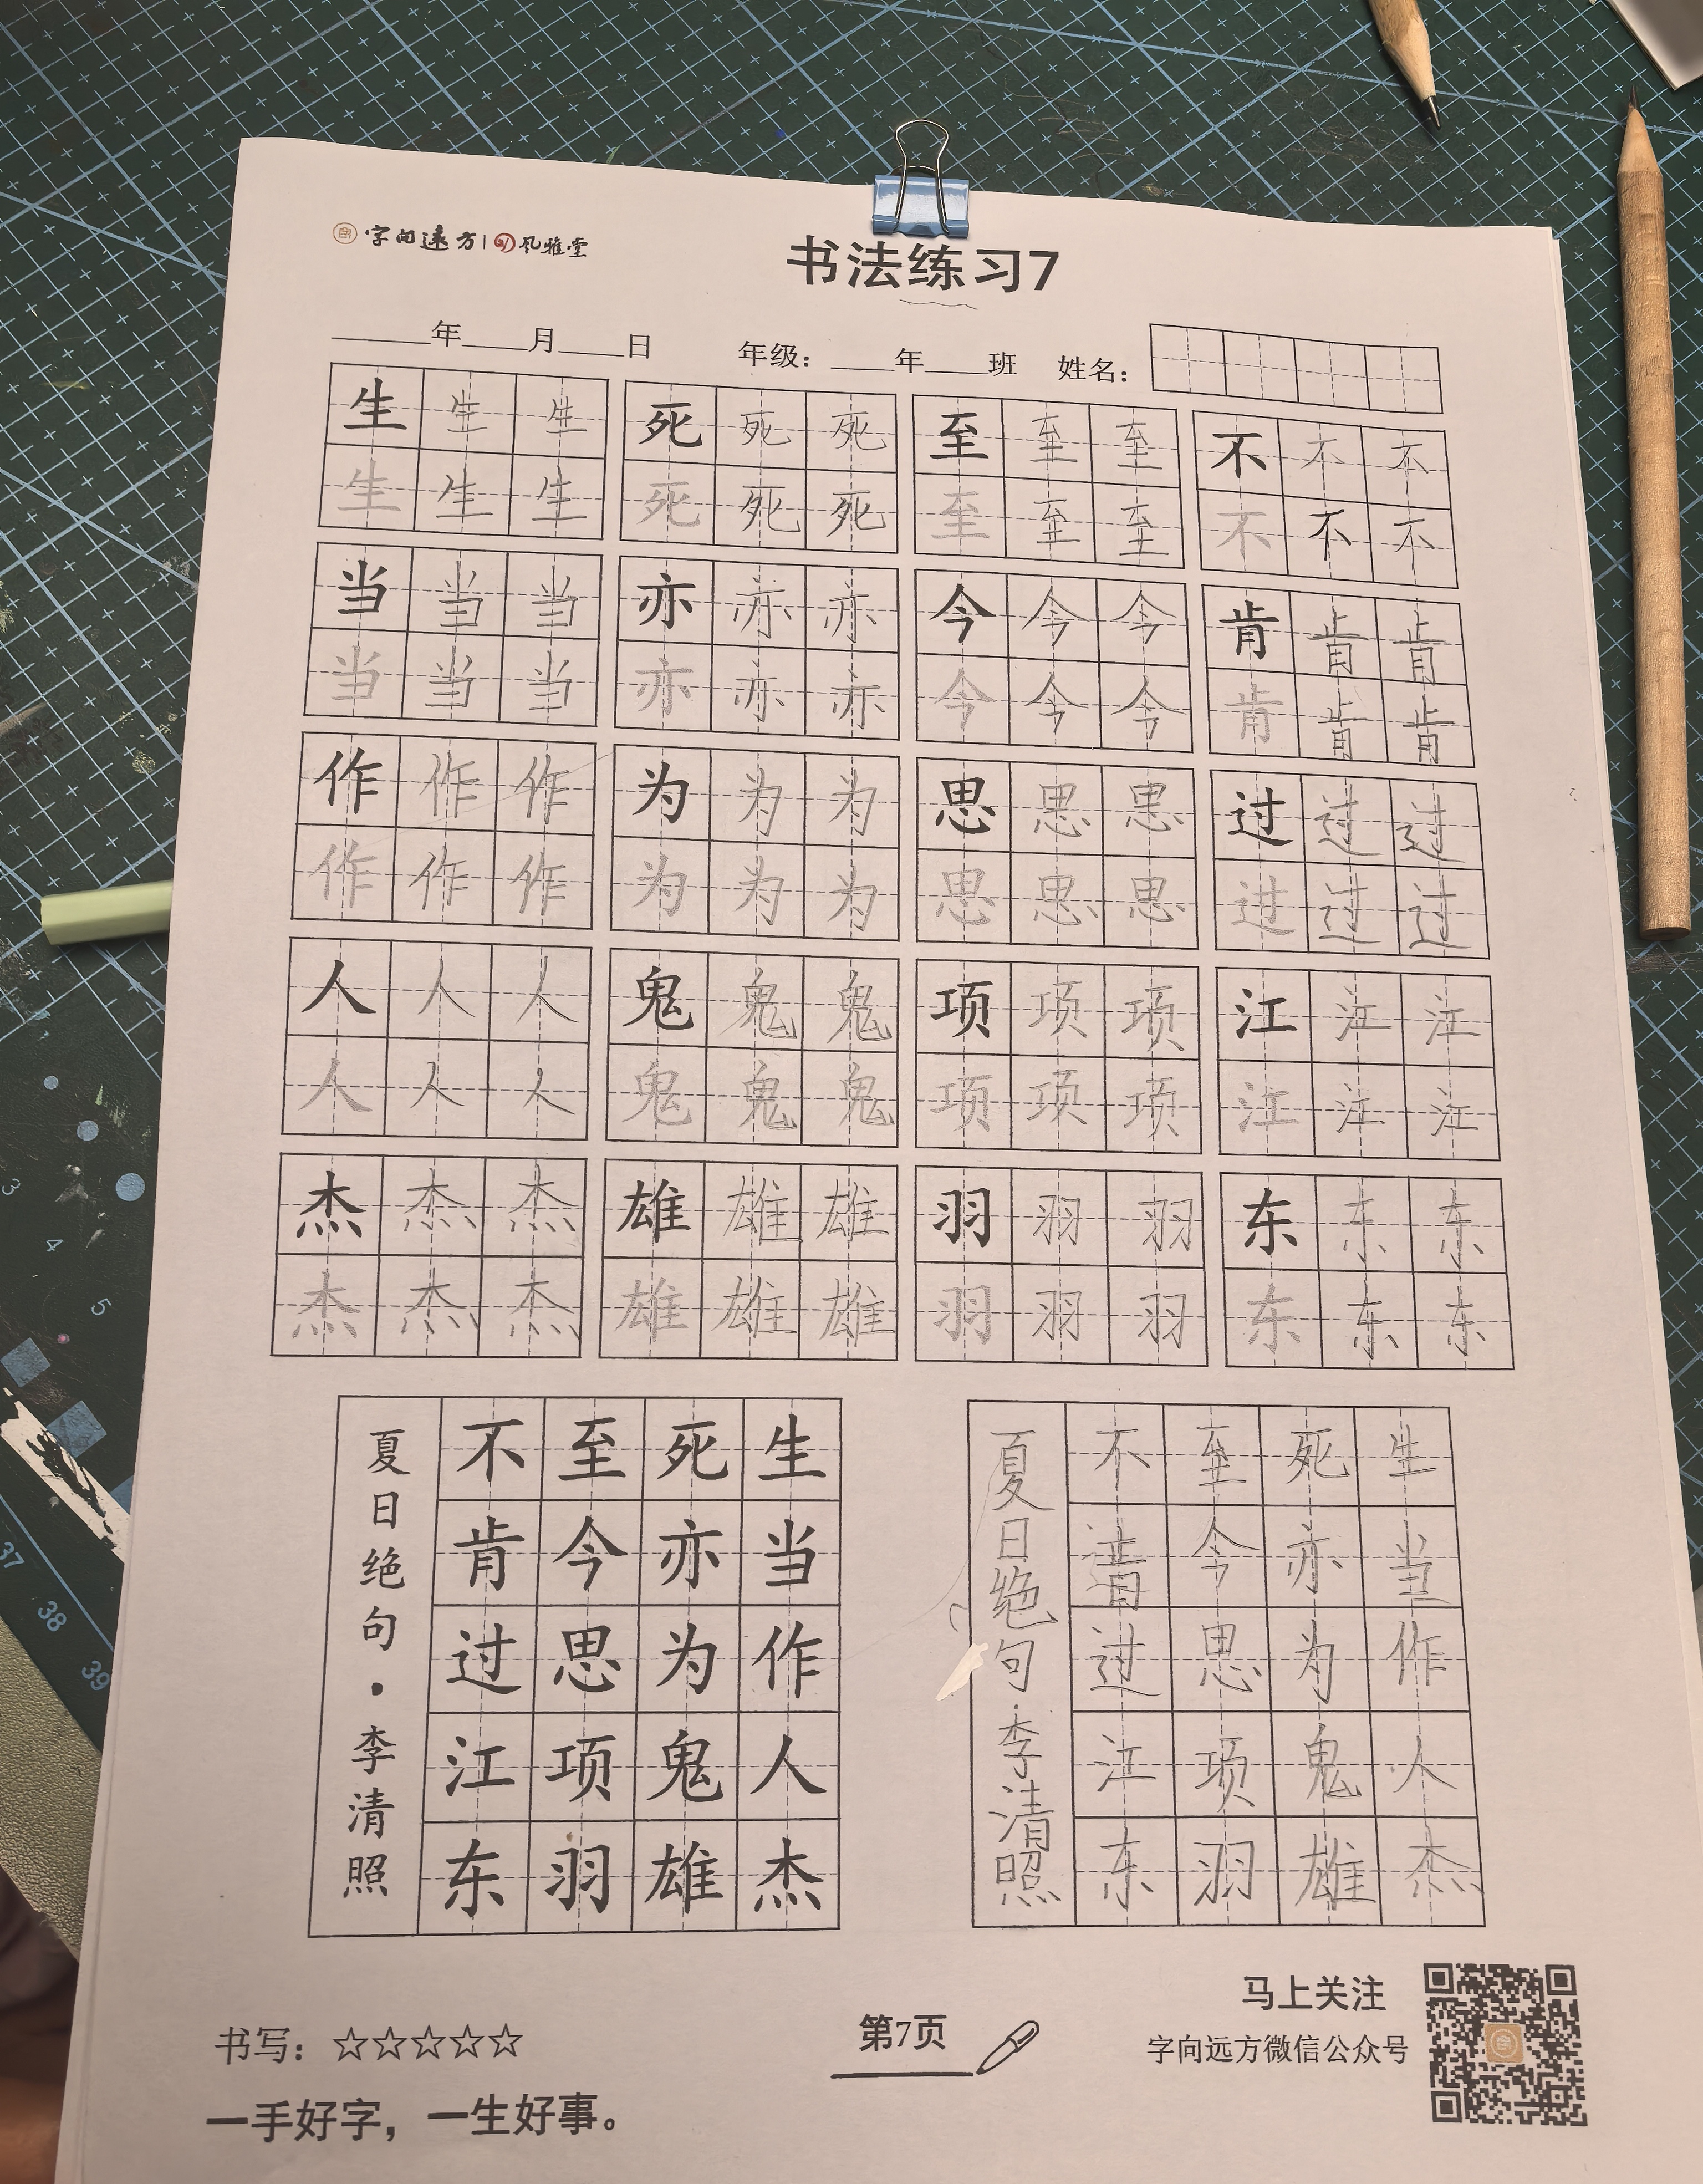 字向远方 | 风雅堂
书法练习7
____年____月____日 年级：____年____班 姓名：
生 生 生 死 死 死 至 至 至 不 不 不
生 生 生 死 死 死 至 至 至 不 不 不
当 当 当 亦 亦 亦 今 今 今 肯 肯 肯
当 当 当 亦 亦 亦 今 今 今 肯 肯 肯
作 作 作 为 为 为 思 思 思 过 过 过
作 作 作 为 为 为 思 思 思 过 过 过
人 人 人 鬼 鬼 鬼 项 项 项 江 江 江
人 人 人 鬼 鬼 鬼 项 项 项 江 江 江
杰 杰 杰 雄 雄 雄 羽 羽 羽 东 东 东
杰 杰 杰 雄 雄 雄 羽 羽 羽 东 东 东
生当作人杰
死亦为鬼雄
至今思项羽
不肯过江东
夏日绝句·李清照
生当作人杰
死亦为鬼雄
至今思项羽
不肯过江东
夏日绝句·李清照
书写：☆☆☆☆☆
一手好字，一生好事。
第7页
马上关注
字向远方微信公众号
3
4
5
37
38
39